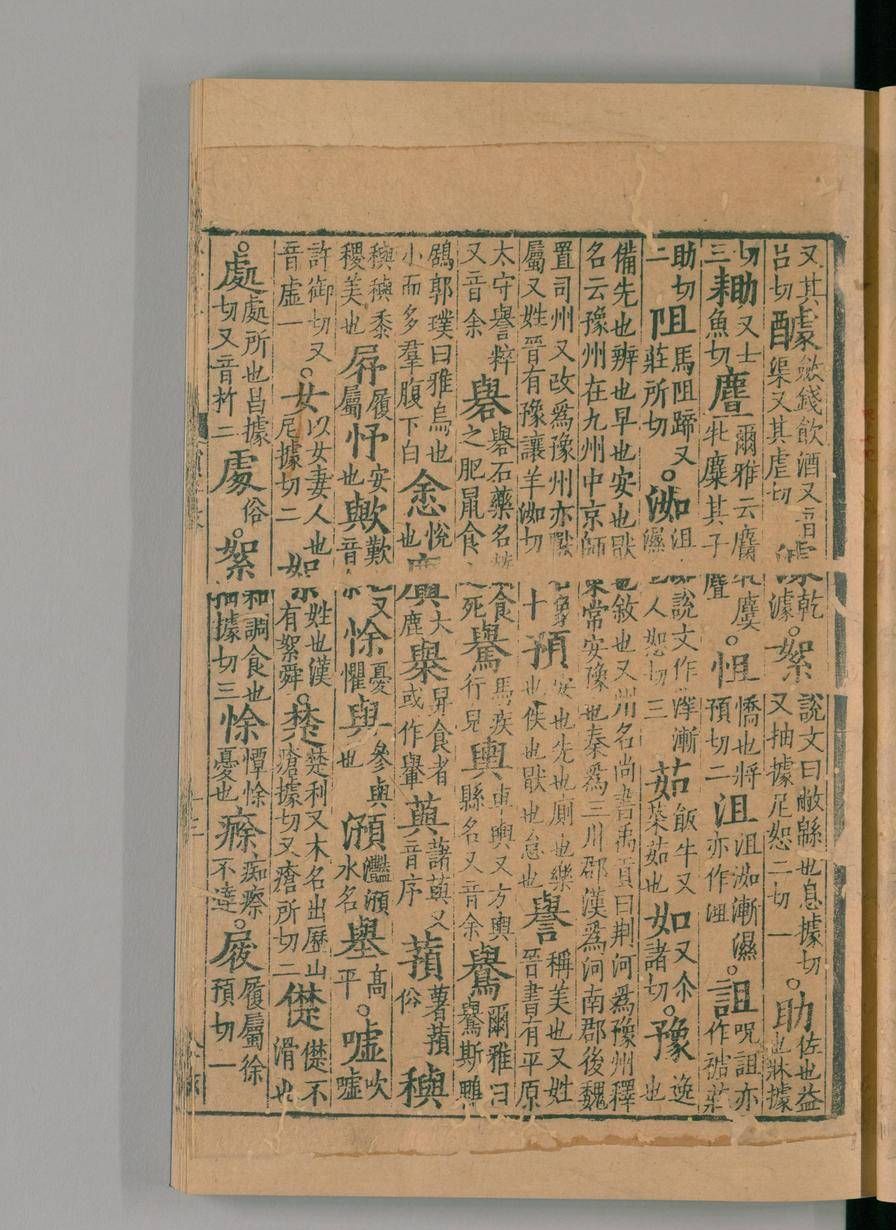 又其呂切醵斂錢飲酒又音渠又其虐切澽乾澽○絮說文曰敝緜也息據切又抽據尼恕二切一○助佐也益也牀據
切三耡又士魚切麆爾雅云麕牡麌牝麋其子麆○怚憍也將預切二沮沮洳漸濕亦作○詛呪詛亦作莊
助切二阻馬阻蹄又莊所切○洳沮洳說文作漸濕也人恕切三茹飯牛又菜茹也如又尒諸切○豫逸也
備先也辨也早也安也猒也敘也又州名尚書禹貢曰荆河爲豫州釋名云豫州在九州中京師東常安豫也秦爲三川郡漢爲河南郡後魏
置司州又改爲豫州亦獸名象屬又姓晉有豫讓羊洳切十預安也先也廁也樂也佚也猒也怠也譽稱美也又姓晉書有平原
太守譽粹又音余礜礜石藥名蠶食之肥鼠食之死馬疾行皃輿車輿又方輿縣名又音余鸒爾雅曰鸒斯鵯
鶋郭璞曰雅烏也小而多羣腹下白悆悅也大鹿舁食者或作轝藇諸藇又音序蕷薯蕷俗穥
穥穥黍稷美也履屬忬安也歟歎也又音悇憂懼與參與也澦灩澦水名高平○嘘吹嘘
許御切又音虛一○女以女妻人也尼據切二絮姓也漢有絮舜○楚楚利又木名出歷山瘡據切又瘡所切二儊儊不滑也
○處處所也昌據切又音杵二䖏俗○絮和調食也抽據切三悇憛悇憂也痴不達○屐履屬徐預切一